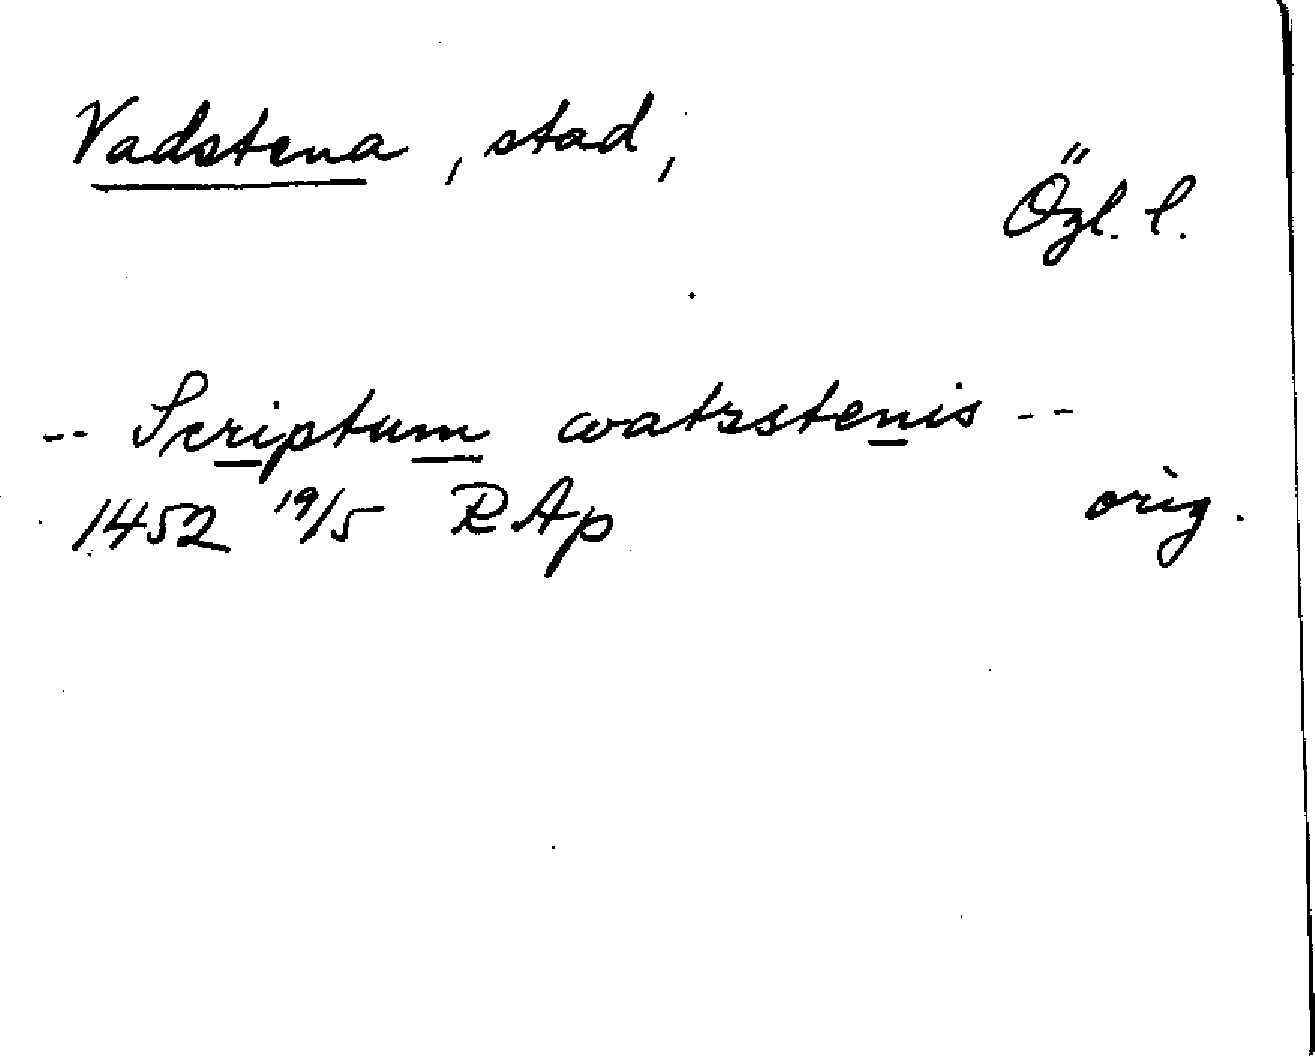 Vadstena, stad,
Ögl. l.
-- Scriptum watzstenis --
1452 19/5 RAp orig.